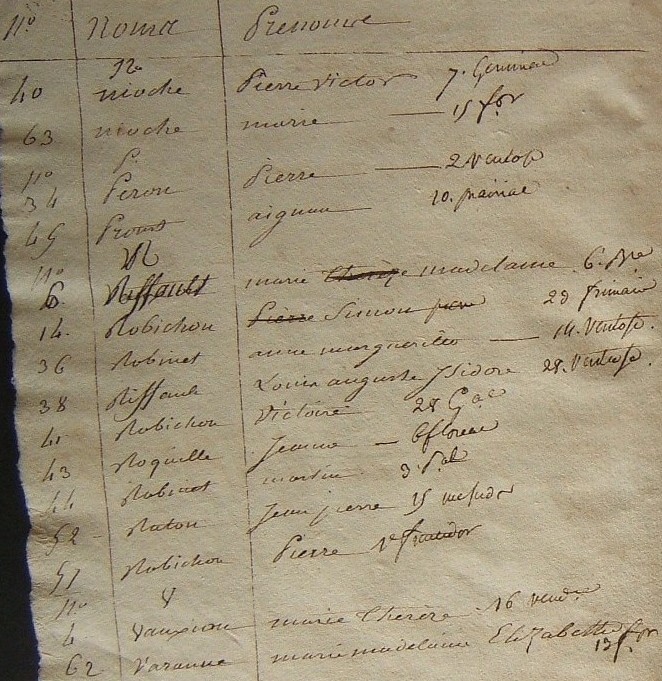 No Noms Prenoms
N
40 nioche Pierre Victor 7. Germinal
63 nioche marie — 15 f.or
No P.
34 Peron Pierre — 2 Ventose
45 Proust aignan 10. prairial
No R
6. Riffault marie Therèze madelaine 6. bre
14. Robichon Pierre Simon pierre 29 frimaire
36 Robinet anne margueritte — 14. Ventose.
38 Riffault Louis auguste Isidore 28. Ventose.
41 Robichon Victoire 28 G.al
43 Roquille Jeanne — 6 floreal
44 Robinet martin 3. P.al
52 - Raton Jean pierre 15 mesidor
57 Robichon Pierre 1er fructidor
No V
4. Vauxion marie Therèze 16 vend.re
62 Varanne marie madelaine Elizabethe 13 f.or